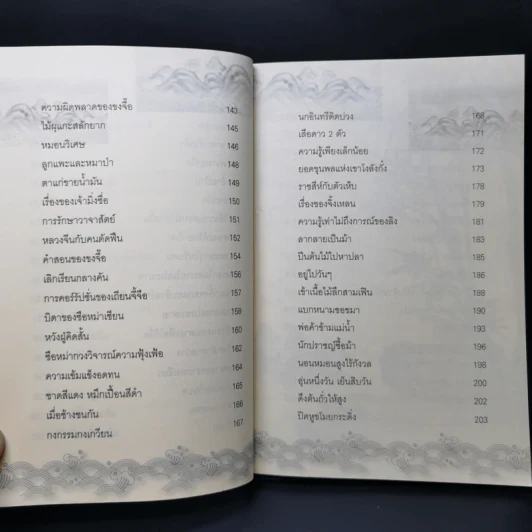 ความผิดพลาดของขงจื๊อ 143
ไม้ผุแกะสลักยาก 145
หมอนวิเศษ 146
ลูกแพะและหมาป่า 148
ตาแก่ขายน้ำมัน 149
เรื่องของเจ้ามิ่งซื่อ 150
การรักษาวาจาสัตย์ 151
หลวงจีนกับคนตัดฟืน 152
คำสอนของขงจื๊อ 154
เลิกเรียนกลางคัน 156
การคอร์รัปชั่นของเถียนจี้จือ 157
บิดาของซือหม่าเซียน 158
หวังผู้คิดสั้น 160
ซือหม่ากวงวิจารณ์ความฟุ้งเฟ้อ 162
ความเข้มแข็งอดทน 164
ชาดสีแดง หมึกเปื้อนสีดำ 165
เมื่อช้างชนกัน 166
กงกรรมกงเกวียน 167
นกอินทรีติดบ่วง 168
เสือดาว 2 ตัว 171
ความรู้เพียงเล็กน้อย 172
ยอดขุนพลแห่งเขาโงลังกั๋ง 173
ราชสีห์กับตัวเห็บ 178
เรื่องของจิ้งเหลน 179
ความรู้เท่าไม่ถึงการณ์ของลิง 181
ลากลายเป็นม้า 183
ปีนต้นไม้ไปหาปลา 185
อยู่ไปวันๆ 186
เข้าเนื้อไม้ลึกสามเฟิน 188
แบกหนามขอขมา 190
พ่อค้าข้ามแม่น้ำ 193
นักปราชญ์ซื้อม้า 196
นอนหมอนสูงไร้กังวล 198
อุ่นหนึ่งวัน เย็นสิบวัน 200
ดึงต้นถั่วให้สูง 202
ปิดหูขโมยกระดิ่ง 203